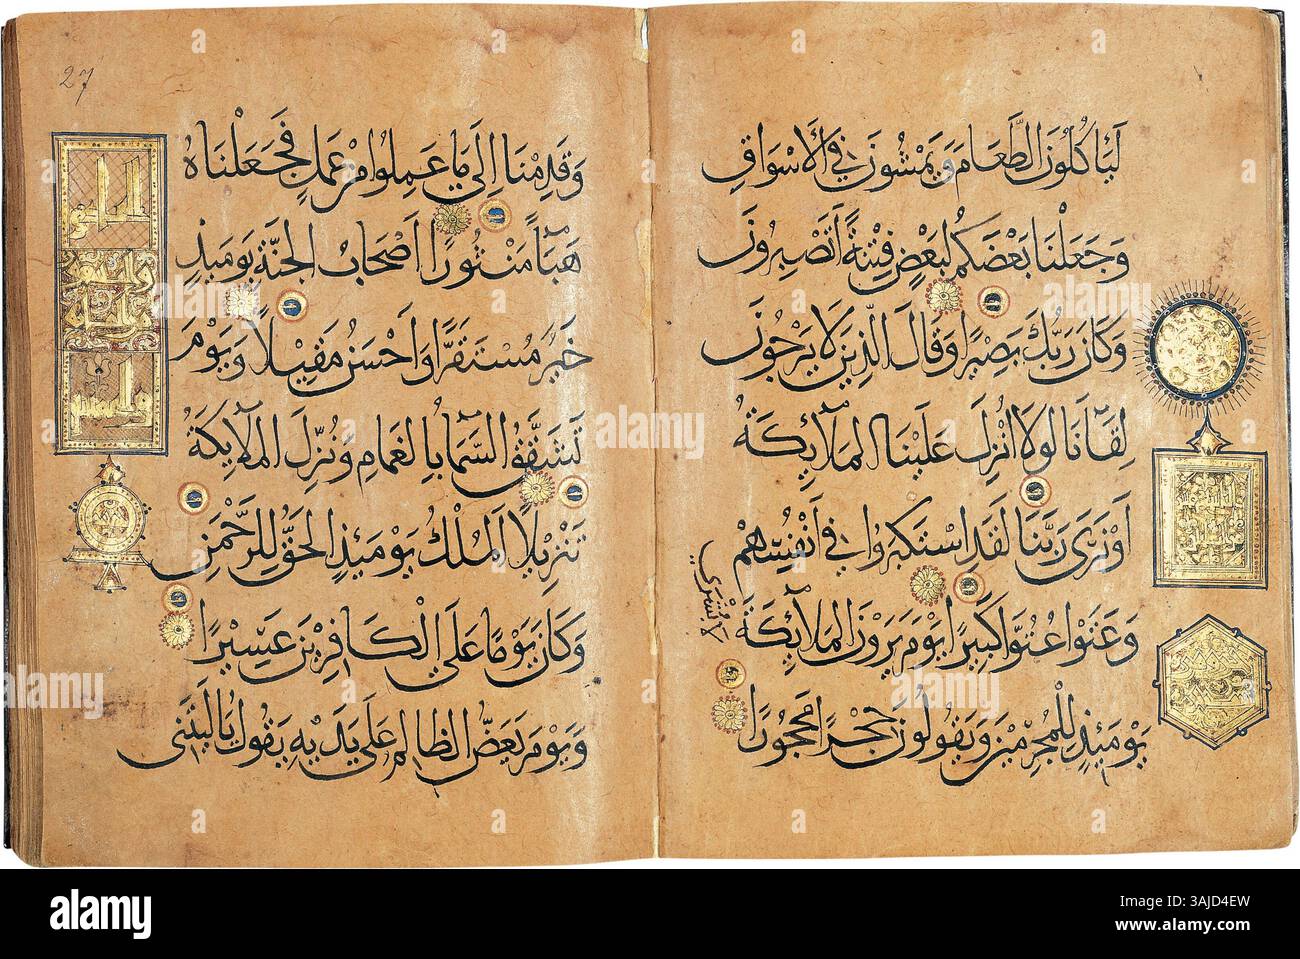 لَيَأْكُلُونَ الطَّعَامَ وَيَمْشُونَ فِي الْأَسْوَاقِ
وَجَعَلْنَا بَعْضَكُمْ لِبَعْضٍ فِتْنَةً أَتَصْبِرُونَ
وَكَانَ رَبُّكَ بَصِيرًا وَقَالَ الَّذِينَ لَا يَرْجُونَ
لِقَاءَنَا لَوْلَا أُنْزِلَ عَلَيْنَا الْمَلَائِكَةُ
أَوْ نَرَى رَبَّنَا لَقَدِ اسْتَكْبَرُوا فِي أَنْفُسِهِمْ
وَعَتَوْا عُتُوًّا كَبِيرًا يَوْمَ يَرَوْنَ الْمَلَائِكَةَ
لَا بُشْرَى
يَوْمَئِذٍ لِلْمُجْرِمِينَ وَيَقُولُونَ حِجْرًا مَحْجُورًا
27
وَقَدِمْنَا إِلَى مَا عَمِلُوا مِنْ عَمَلٍ فَجَعَلْنَاهُ
هَبَاءً مَنْثُورًا أَصْحَابُ الْجَنَّةِ يَوْمَئِذٍ
خَيْرٌ مُسْتَقَرًّا وَأَحْسَنُ مَقِيلًا وَيَوْمَ
تَشَقَّقُ السَّمَاءُ بِالْغَمَامِ وَنُزِّلَ الْمَلَائِكَةُ
تَنْزِيلًا الْمُلْكُ يَوْمَئِذٍ الْحَقُّ لِلرَّحْمَنِ
وَكَانَ يَوْمًا عَلَى الْكَافِرِينَ عَسِيرًا
وَيَوْمَ يَعَضُّ الظَّالِمُ عَلَى يَدَيْهِ يَقُولُ يَا لَيْتَنِي
alamy
Image ID: 3AJD4EW
www.alamy.com